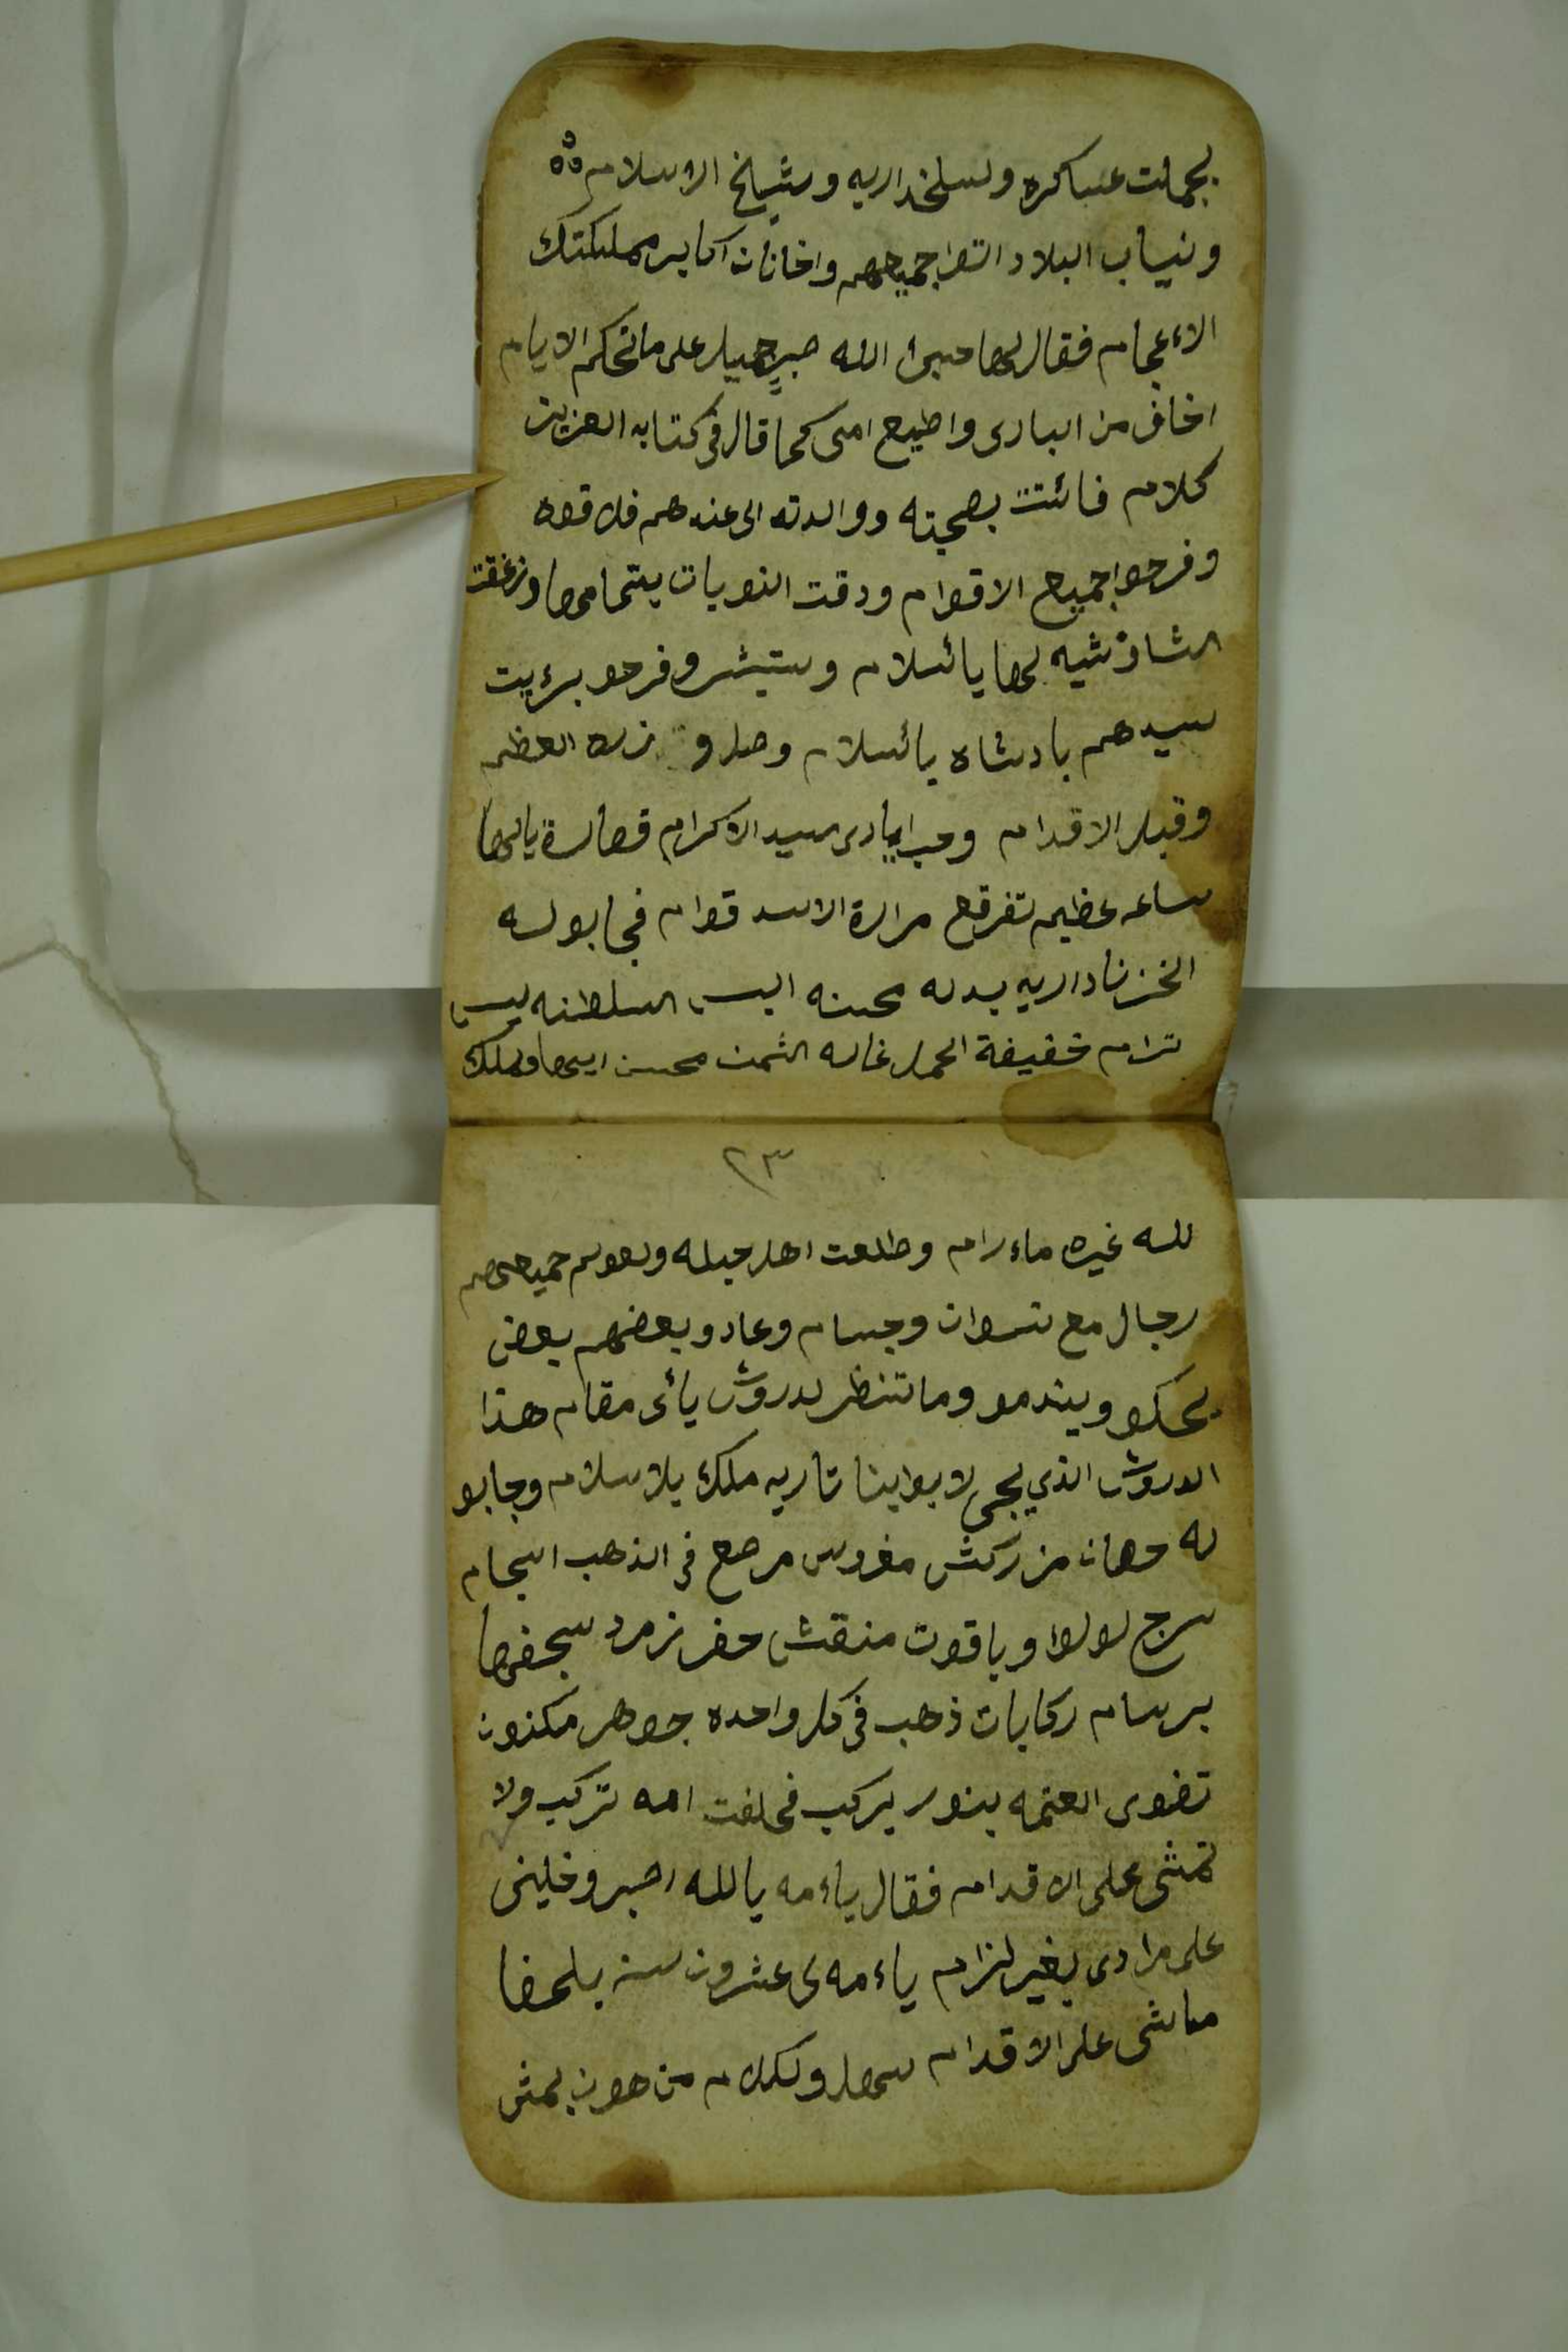 بجملت عساكره ولسلخداريه وشيخ الاسلام
ونياب البلاد التقوا جميعهم واخانات اكابر مملكتك
الاءعجام فقال لها صبرا الله صبر جميل على ما تحكم الايام
اخاف من البارى واطيع امى كما قال فى كتابه العزيز
كلام فائتت بصحبته ووالدته الى عندهم فلاقوه
وفرحوا جميع الاقوام ودقت النوبات بتمامها وزعقت
الشاوشيه لها يائسلام وستبشرو فرحو برؤيت
سيدهم بادشاه يائسلام وصل وزره العظم
وقبل الاقدام وحب ايادى سيد الاكرام فصارة يالها
ساعه عظيمه تفرقع مرارة الاسد قوام فجابو له
الخزناداريه بدله محسنه البس السلطنه لبس
ترام خفيفة الحمل غاله الثمن محسن ايسها وملك
٢٣
لله غيره ماء رام وطلعت اهل جبله جميعهم
رجال مع نسوان وجسام وعادو بعضهم بعض
يحكو ويندمو وما تنظر لدروش يائى مقام هذا
الدروش الذي يجى لابوابنا تاريه ملك يلاسلام وجابو
له حصان مزركش مغروس مرصع فى الذهب السجام
سرج لولوا وياقوت منقش حفر زمرد سجفها
برسام ركابات ذهب فى كل واحده جوهر مكنون
تضوى العتمه بنور يركب فحلفت امه تركب ولا
تمشى على الاقدام فقال ياءمه يالله اصبر وخلينى
على مرادى بغير لزام ياءمه لى عشرون سنه بلحفا
ماشى على الاقدام سهل ولكلام من هون بمش